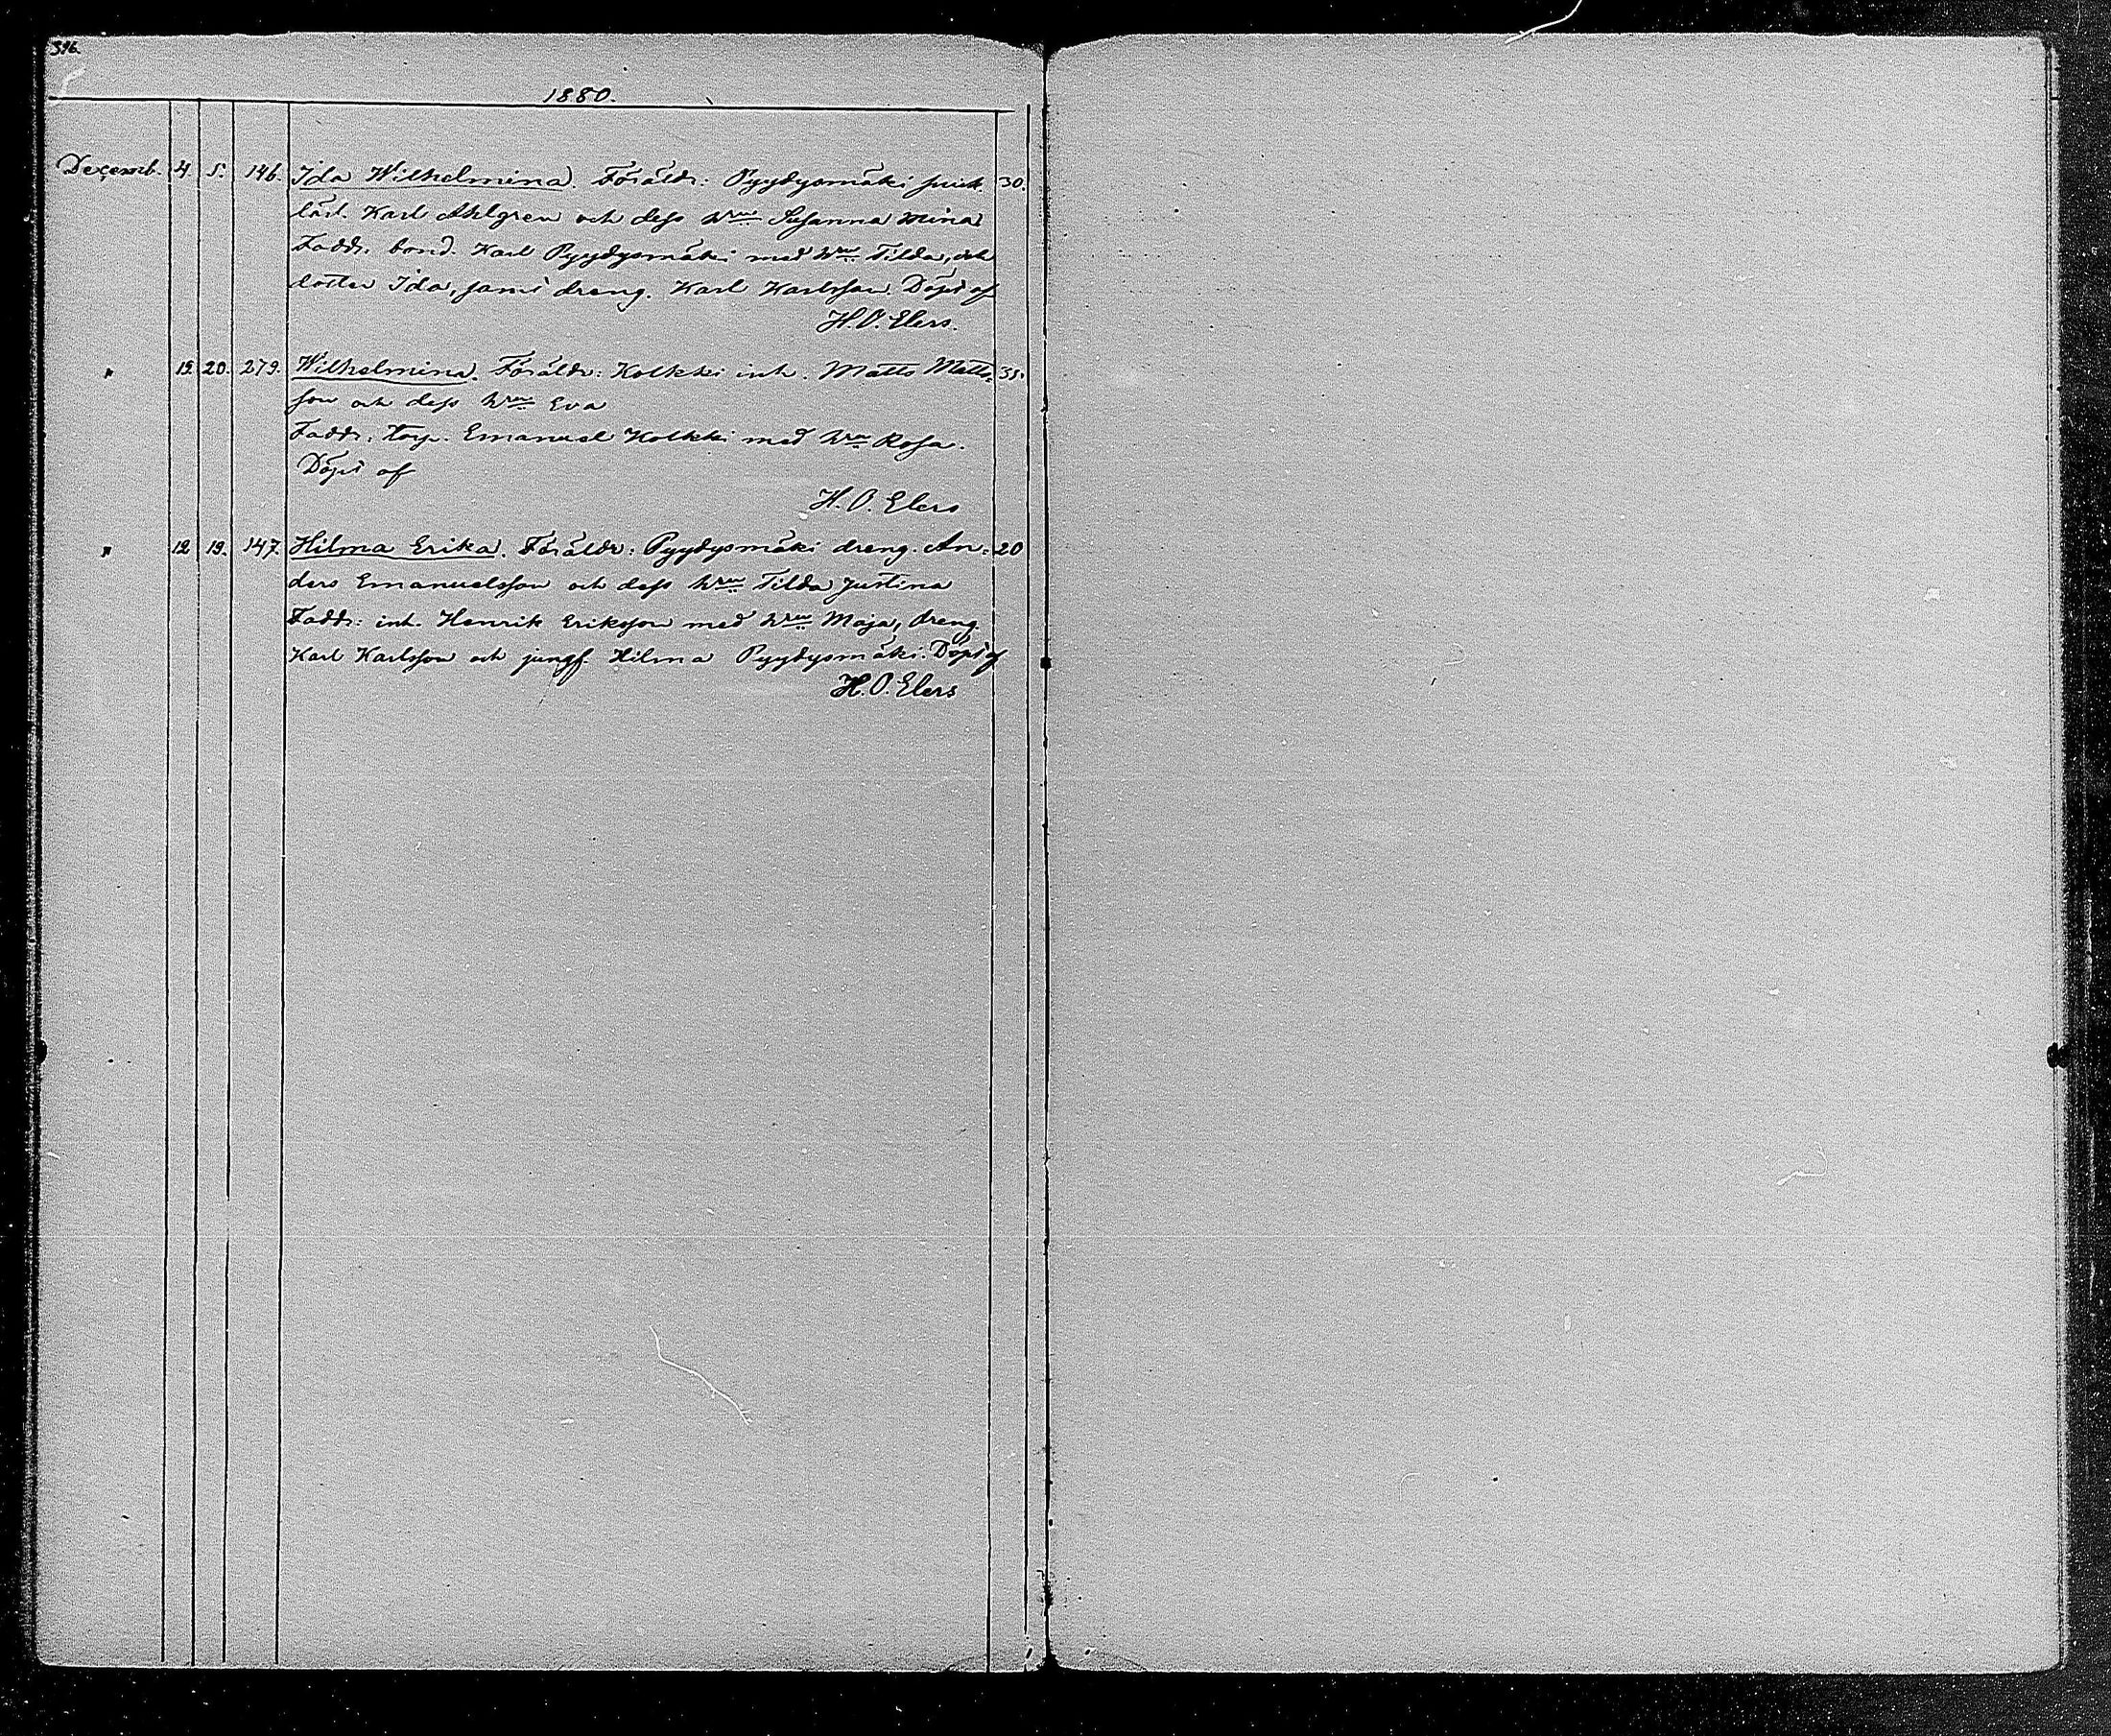 396.
1880.
Decemb. 4 5. 146. Ida Wilhelmina. Föräldr: Pyydysmäki snick. 30.
lärl. Karl Ahlgren och dess hru Susanna Mina
Faddr. bond. Karl Pyydysmäki med hru Tilda, och
dotter Ida, samt dreng. Karl Karlsson. Döpt af
H. O. Elers.
" 19. 20. 279. Wilhelmina. Föräldr: Kolkki inh. Matts Matts= 35.
son och dess hru Eva
Faddr. torp. Emanuel Kolkki med hru Rosa.
Döpt af
H. O. Elers
" 12 19. 147. Hilma Erika. Föräldr: Pyydysmäki dreng. An= 20
ders Emanuelsson och dess hru Tilda Justina
Faddr: inh. Henrik Eriksson med hru Maja, dreng.
Karl Karlsson och jungf. Hilma Pyydysmäki. Döpt af
H. O. Elers